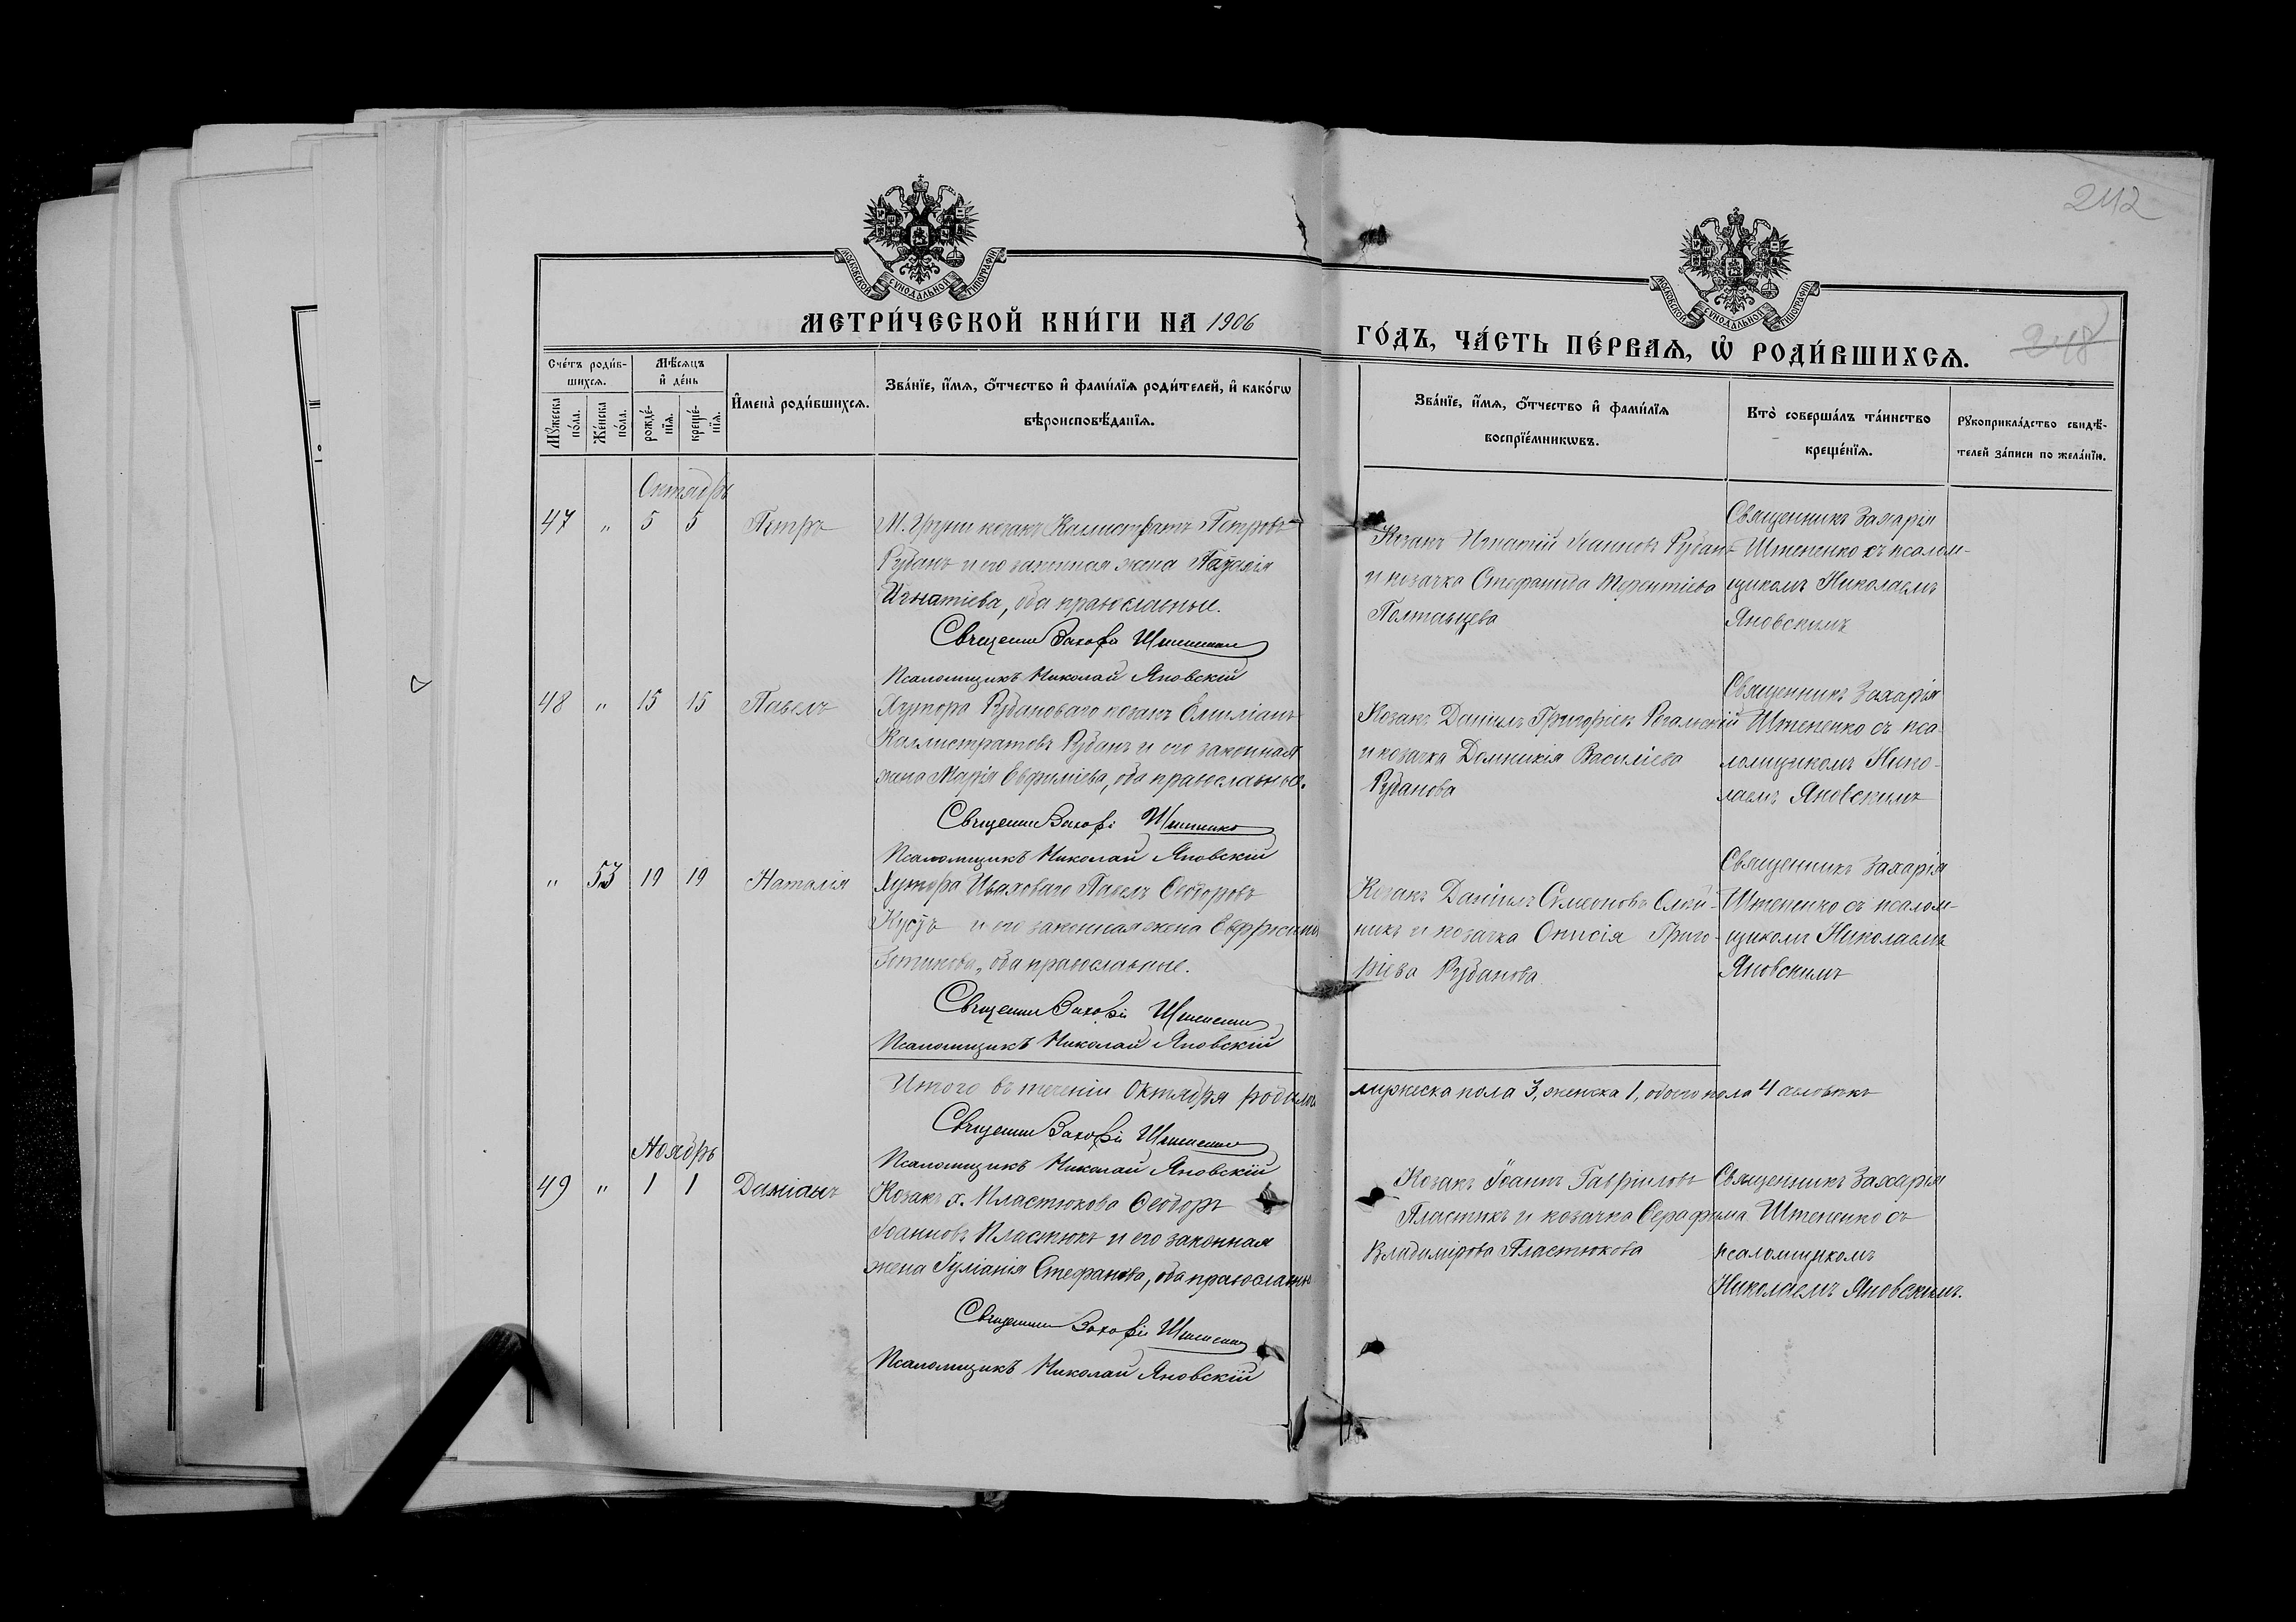 242
МОСКОВСКОЙ СУНОДАЛЬНОЙ ТИПОГРАФІИ
МОСКОВСКОЙ СУНОДАЛЬНОЙ ТИПОГРАФІИ
МЕТРИ́ЧЕСКОЙ КНИ́ГИ НА 1906
ГО́ДЪ, ЧА́СТЬ ПЕ́РВАѦ, Ѡ҆ РОДИ́ВШИХСѦ.
248
Сче́тъ роди́в-
шихсѧ.
Мꙋ́жеска по́ла.
Же́нска по́ла.
Мѣ́сѧцъ
и҆ де́нь
рожде́-
нїѧ.
креще́-
нїѧ.
И҆мена̀ роди́вшихсѧ.
Зва́нїе, и҆́мѧ, ѻ҆́тчество и҆ фами́лїѧ роди́телей, и҆ како́гѡ
вѣроисповѣ́данїѧ.
Зва́нїе, и҆́мѧ, ѻ҆́тчество и҆ фами́лїѧ
воспрїе́мникѡвъ.
Кто̀ соверша́лъ та́инство
креще́нїѧ.
Рꙋкоприкла́дство свидѣ́-
телей за́писи по жела́нїю.
Октябрь
47 " 5 5 Петръ
М. Груни козакъ Каллистратъ Петровъ
Рубанъ и его законная жена
Игнатіева, оба православные.
Священникъ Захарія Штепенко
Псаломщикъ Николай Яновскій
Козакъ Игнатій Іоанновъ Рубанъ
и козачка Стефанида Терентіева
Полтавцева
Священникъ Захарія
Штепенко съ псалом-
щикомъ Николаемъ
Яновскимъ
48 " 15 15 Павелъ
Хутора Рубановаго козакъ Емиліанъ
Каллистратовъ Рубанъ и его законная
жена Марія Евфиміева, оба православные.
Священникъ Захарія Штепенко
Псаломщикъ Николай Яновскій
Козакъ Даніилъ Григоріевъ
и козачка Домникія Василіева
Рубанова
Священникъ Захарія
Штепенко съ пса
ломщикомъ Нико-
лаемъ Яновскимъ
" 53 19 19 Наталія
Хутора Иваховаго Павелъ Ѳеодоровъ
и его законная жена
оба православные.
Священникъ Захарія Штепенко
Псаломщикъ Николай Яновскій
Козакъ Даніилъ Симеоновъ Олей-
никъ и козачка Онисія Григо-
ріева Рубанова
Священникъ Захарія
Штепенко съ псалом-
щикомъ Николаемъ
Яновскимъ
Итого въ теченіи Октября родилось мужеска пола 3, женска 1, обоего пола 4 человѣкъ
Священникъ Захарія Штепенко
Псаломщикъ Николай Яновскій
Ноябрь
49 " 1 1 Даміанъ
Козакъ х. Пластюкова Ѳеодоръ
Іоанновъ Пластюкъ и его законная
жена Іуліанія Стефанова, оба православны
Священникъ Захарія Штепенко
Псаломщикъ Николай Яновскій
Козакъ Іоаннъ Гавріиловъ
Пластюкъ и козачка Серафима
Владимірова Пластюкова
Священникъ Захарія
Штепенко съ
псаломщикомъ
Николаемъ Яновскимъ.